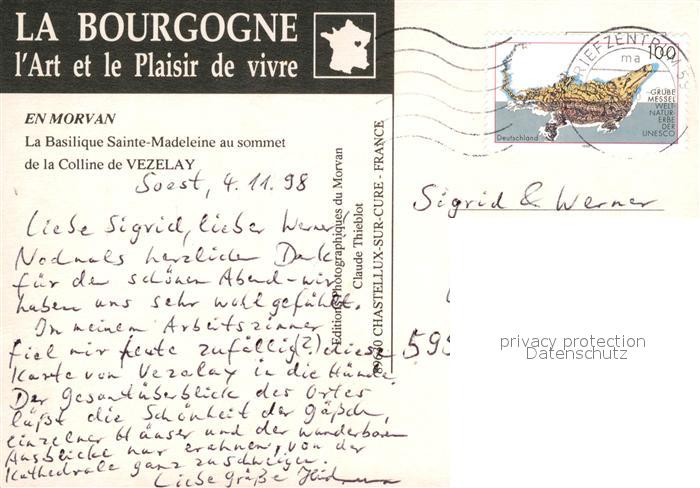 LA BOURGOGNE
l'Art et le Plaisir de vivre
EN MORVAN
La Basilique Sainte-Madeleine au sommet
de la Colline de VEZELAY
Soest, 4.11.98
Liebe Sigrid, lieber Werner,
Nochmals herzlichen Dank
für den schönen Abend - wir
haben uns sehr wohl gefühlt.
In meinem Arbeitszimmer
fiel mir heute zufällig (?) diese
Karte von Vezelay in die Hände.
Der Gesamtüberblick des Ortes
läßt die Schönheit der Gäßchen,
einzelner Häuser und der wunderbaren
Ausblicke nur erahnen, von der
Kathedrale ganz zu schweigen.
Liebe Grüße
Editions Photographiques du Morvan
Claude Thieblot
89630 CHASTELLUX-SUR-CURE - FRANCE
BRIEFZENTRUM 59
ma
100
GRUBE
MESSEL
WELT-
NATUR-
ERBE
DER
UNESCO
Deutschland
Sigrid & Werner
595
privacy protection
Datenschutz